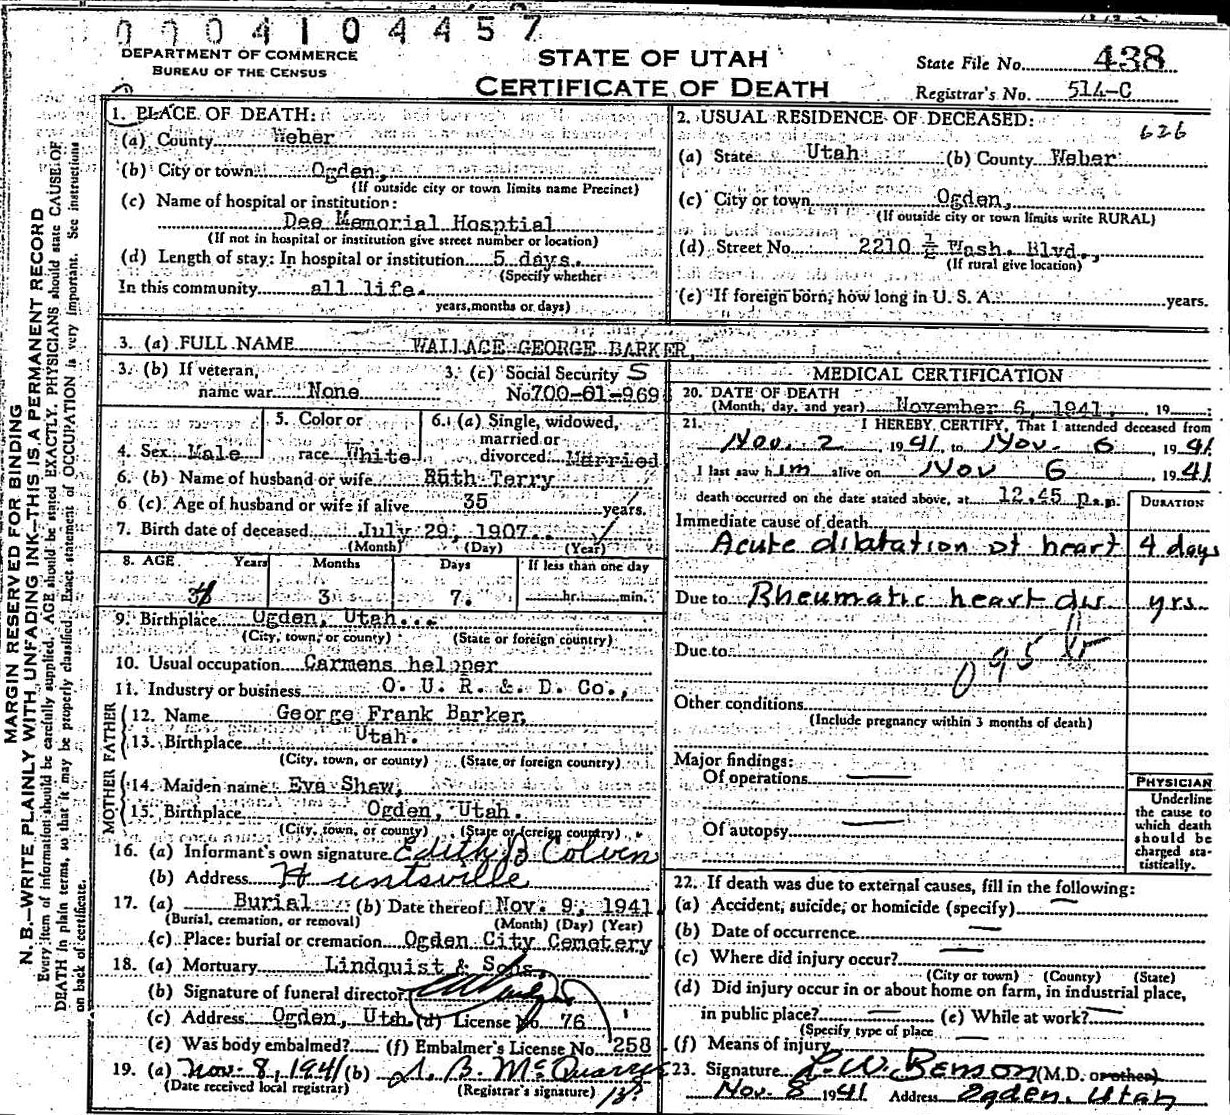 0004104457
DEPARTMENT OF COMMERCE
BUREAU OF THE CENSUS
STATE OF UTAH
CERTIFICATE OF DEATH
State File No. 438
Registrar's No. 514-C
1. PLACE OF DEATH:
(a) County Weber
(b) City or town Ogden,
(If outside city or town limits name Precinct)
(c) Name of hospital or institution:
Dee Memorial Hosptial
(If not in hospital or institution give street number or location)
(d) Length of stay: In hospital or institution 5 days.
(Specify whether
In this community all life.
years, months or days)
2. USUAL RESIDENCE OF DECEASED:
626
(a) State Utah (b) County Weber
(c) City or town Ogden,
(If outside city or town limits write RURAL)
(d) Street No. 2210 ½ Wash. Blvd.,
(If rural give location)
(e) If foreign born, how long in U. S. A. years.
3. (a) FULL NAME WALLACE GEORGE BARKER,
3. (b) If veteran,
name war None
3. (c) Social Security S
No. 700-01-969
4. Sex Male
5. Color or
race White
6. (a) Single, widowed,
married or
divorced Married
6. (b) Name of husband or wife Ruth Terry
6 (c) Age of husband or wife if alive 35 years.
7. Birth date of deceased July 29, 1907.
(Month) (Day) (Year)
8. AGE Years Months Days If less than one day
3 7. hr. min.
9. Birthplace Ogden, Utah...
(City, town, or county) (State or foreign country)
10. Usual occupation Carmens helpner
11. Industry or business O. U. R. & D. Co.,
FATHER
12. Name George Frank Barker,
13. Birthplace Utah.
(City, town, or county) (State or foreign country)
MOTHER
14. Maiden name Eva Shaw,
15. Birthplace Ogden, Utah.
(City, town, or county) (State or foreign country)
16. (a) Informant's own signature Edith B Colvin
(b) Address Huntsville
17. (a) Burial (b) Date thereof Nov. 9, 1941
(Burial, cremation, or removal) (Month) (Day) (Year)
(c) Place: burial or cremation Ogden City Cemetery
18. (a) Mortuary Lindquist & Sons,
(b) Signature of funeral director
(c) Address Ogden, Utah (d) License No. 76
(e) Was body embalmed? (f) Embalmer's License No. 258
19. (a) Nov. 8, 1941 (b) B. McQuarrie
(Date received local registrar) (Registrar's signature)
MEDICAL CERTIFICATION
20. DATE OF DEATH
(Month, day, and year) November 6, 1941. , 19 :
21. I HEREBY CERTIFY, That I attended deceased from
Nov. 2 1941, to Nov. 6, 1941
I last saw him alive on Nov 6, 1941
death occurred on the date stated above, at 12.45 p.m. DURATION
Immediate cause of death
Acute dilatation of heart 4 days
Due to Rheumatic heart dis yrs.
Due to
095
Other conditions
(Include pregnancy within 3 months of death)
Major findings:
Of operations
Of autopsy
PHYSICIAN
Underline
the cause to
which death
should be
charged sta-
tistically.
22. If death was due to external causes, fill in the following:
(a) Accident, suicide, or homicide (specify)
(b) Date of occurrence
(c) Where did injury occur?
(City or town) (County) (State)
(d) Did injury occur in or about home on farm, in industrial place,
in public place? (e) While at work?
(Specify type of place
(f) Means of injury
23. Signature Benson (M.D. or other)
Nov. 8 1941 Address Ogden, Utah
MARGIN RESERVED FOR BINDING
N. B.—WRITE PLAINLY WITH UNFADING INK—THIS IS A PERMANENT RECORD
Every item of information should be carefully supplied. AGE should be stated EXACTLY. PHYSICIANS should state CAUSE OF
DEATH in plain terms, so that it may be properly classified. Exact statement of OCCUPATION is very important. See instructions
on back of certificate.